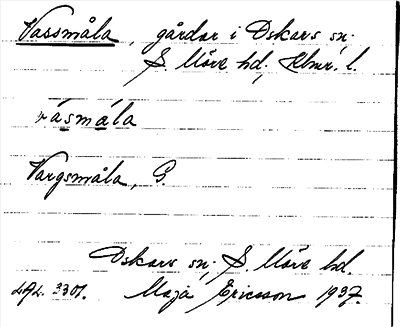 Vassmåla, gårdar i Oskars sn.
S. Möre hd, Klmr. l.
vásmåla
Vargsmåla, G.
Oskars sn, S. Möre hd.
LAL. 3301. Maja Ericsson 1937.